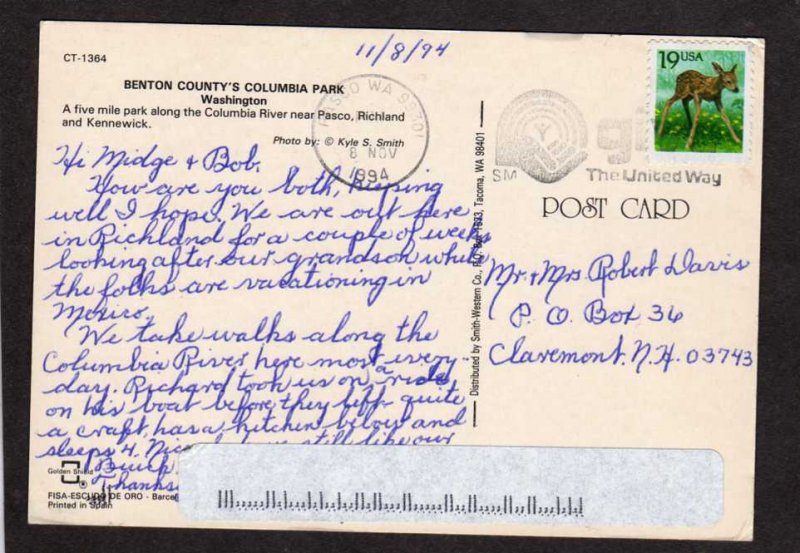 CT-1364
11/8/94
BENTON COUNTY'S COLUMBIA PARK
Washington
A five mile park along the Columbia River near Pasco, Richland
and Kennewick.
Photo by: © Kyle S. Smith
PASCO WA 99301
8 NOV
1994
19 USA
SM
The United Way
POST CARD
Hi Midge & Bob.
How are you both, keeping
well I hope. We are out here
in Richland for a couple of weeks
looking after our grandson while
the folks are vacationing in
Mexico.
We take walks along the
Columbia River here most every-
day. Richard took us on a ride
on his boat before they left - quite
a craft, has a kitchen below and
sleeps 4. still like our
Distributed by Smith-Western Co., P.O. Box 1933, Tacoma, WA 98401
Mr. & Mrs. Robert Davis
P. O. Box 36
Claremont. N.H. 03743
Golden Shield
®
FISA-ESCUDO DE ORO - Barcel
Printed in Spain